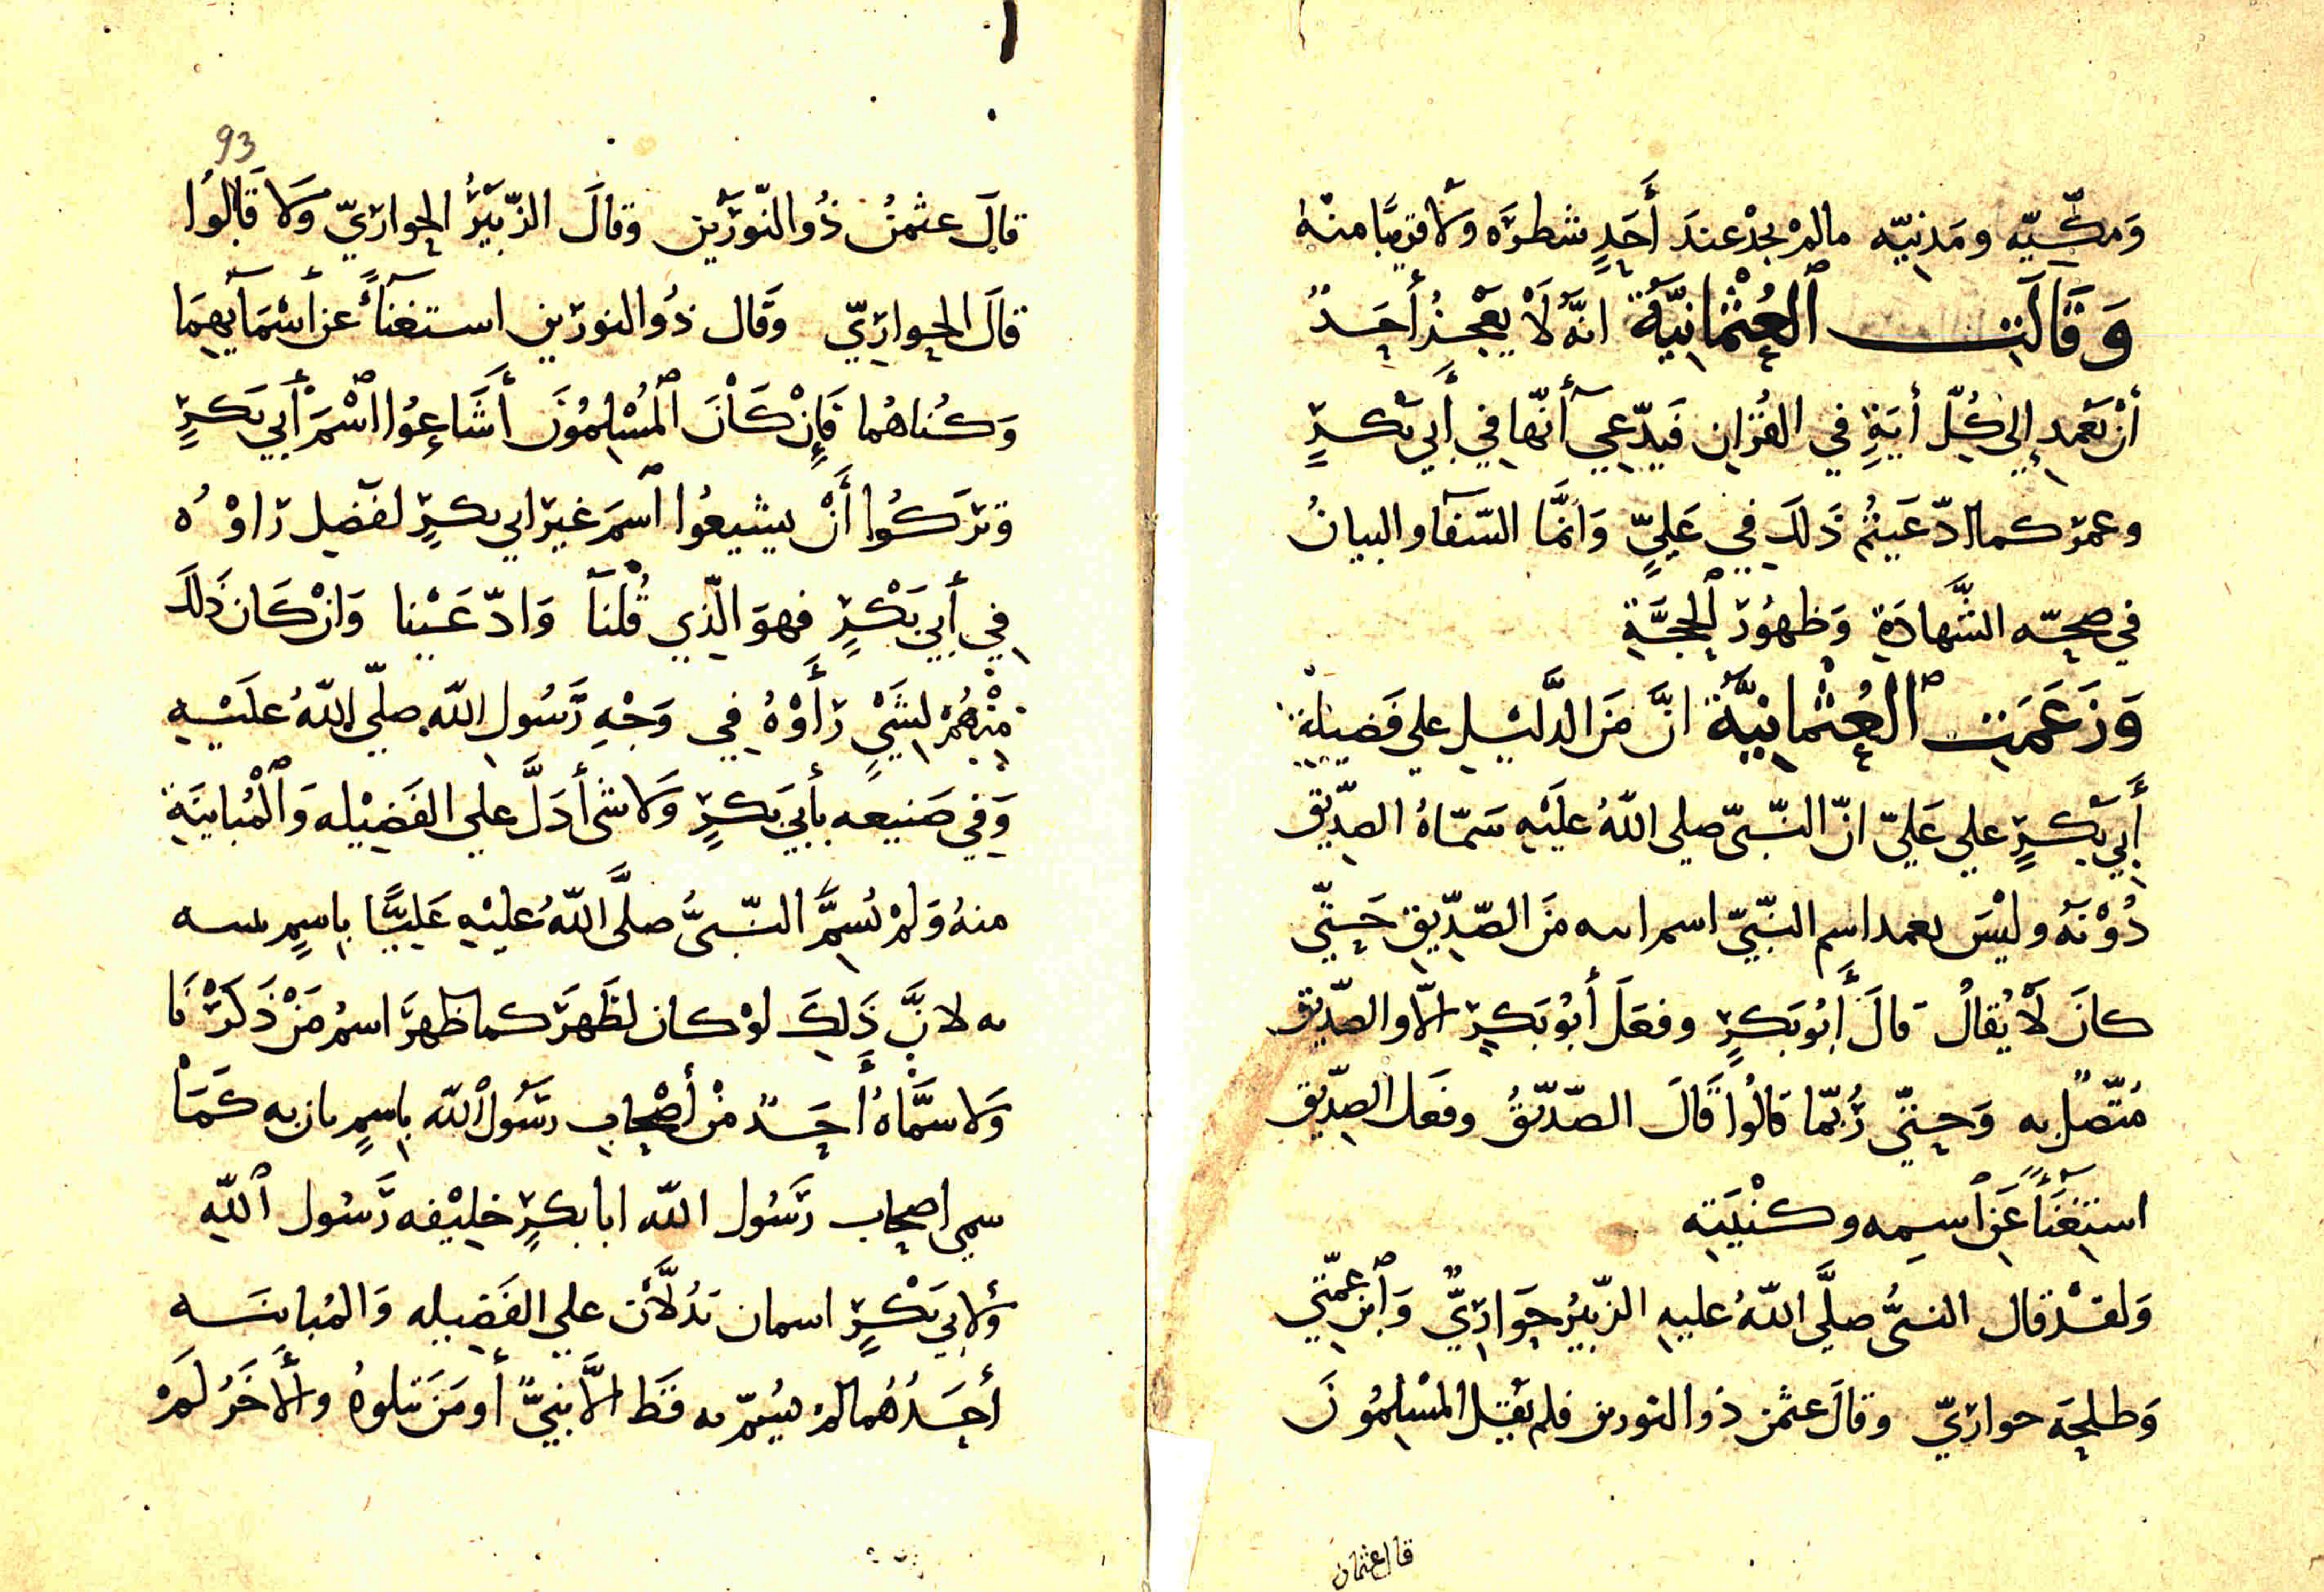 وَمكِّيّه ومَدنيّه مالمْ يجدْ عندَ أَحَدٍ شطرَه وَلَا قريبًا منْه
وَقَالَت ٱلعُثْمَانِيَّة انَّه لَا يعْجزُ أَحَدٌ
أَنْ يَعْمِد إلى كُلِّ أيَةٍ في القُرْان فَيدّعِي أنّها في أَبي بَكرٍ
وعمَر كما ادّعَيتُم ذَلكَ في عَليٍّ وَانمَّا الشّفآ والبيانُ
في صحّه الشَّهادَةِ وَظهُورِ ٱلحجَّةِ
وَزَعَمَت ٱلعُثْمانِيَّةُ انَّ منَ الدَّليْلِ علي فَضيلةِ
أَبي بَكرٍ علي عَليّ انّ النّبيّ صلى اللّهُ علَيْهِ سَمّاهُ الصدّيق
دُوْنَهُ وليْسَ بعد اسم النّبيّ اسم انبه منَ الصّدِّيقِ حَتّي
كانَ لَا يُقالُ قَالَ أَبُو بَكرٍ وفعَلَ أَبُو بَكرٍ الّا والصّدّيق
مُتّصلٌ به وَحتّي رُبّما قالُوا قَالَ الصّدّيقُ وفعَل الصّدِّيق
استِغنَآءً عَن ٱسمِه وكنْيَتِه
وَلقدْ قال النبيُّ صلَّى اللّهُ عليهِ الزّبيرُ حَوَارِيّ وَٱبن عمّتي
وَطلحَة حواريّ وقالَ عثمن ذو النورين فلم يَقل المُسْلِمُونَ
قال عثمان
93
قالَ عثمنُ ذُو النّورَيْن وقالَ الزّبَيْرُ الحواريّ وَلَا قَالُوا
قالَ الحوارِيّ وَقال ذُو النورَين استغنآءً عن أَسْمَآئِهِمَا
وَكُناهُما فَإِنْ كَانَ ٱلمُسْلِمُونَ أَشَاعُوا ٱسْمَ أَبي بَكرٍ
وَتَركُوا أَنْ يشيعُوا ٱسمَ غيْر ابي بكرٍ لفَضلٍ رَاوْهُ
في أَبي بَكْرٍ فهوَ الّذي قُلْنَآ وَادّعَيْنا وَانْ كَان ذَلكَ
منْهُمْ لشَيْءٍ رَأَوْهُ في وَجْهِ رَسُولِ اللّهِ صلّى اللّهُ علَيْهِ
وَفي صَنيعه بأبي بَكرٍ وَلا شئ أَدَلَّ علي الفَضيْله وَٱلْمُباينَةِ
منهُ وَلمْ يُسمِّ النّبيُّ صلَّى اللّهُ عليْهِ عَليًّا باسمٍ يبينه
به لانَّ ذَلِكَ لوْ كان لظَهرَ كما ظهرَ اسمُ مَنْ ذَكَرْنَا
وَلا سمَّاهُ أَحَدٌ منْ أَصْحَابِ رسَول ٱللّه باسمٍ بان به كَمَا
سمي اصحاب رَسُول اللّه ابا بكرٍ خليْفه رَسُول ٱللّهِ
وَلأَبي بَكْرٍ اسمان يَدُلَّان علي الفَضيله وَالمُباينَه
أَحَدُهُما لمْ يُسمّ به قَط الّا نبيٌّ أو مَن يَتلوهُ والْأَخَرُ لَمْ